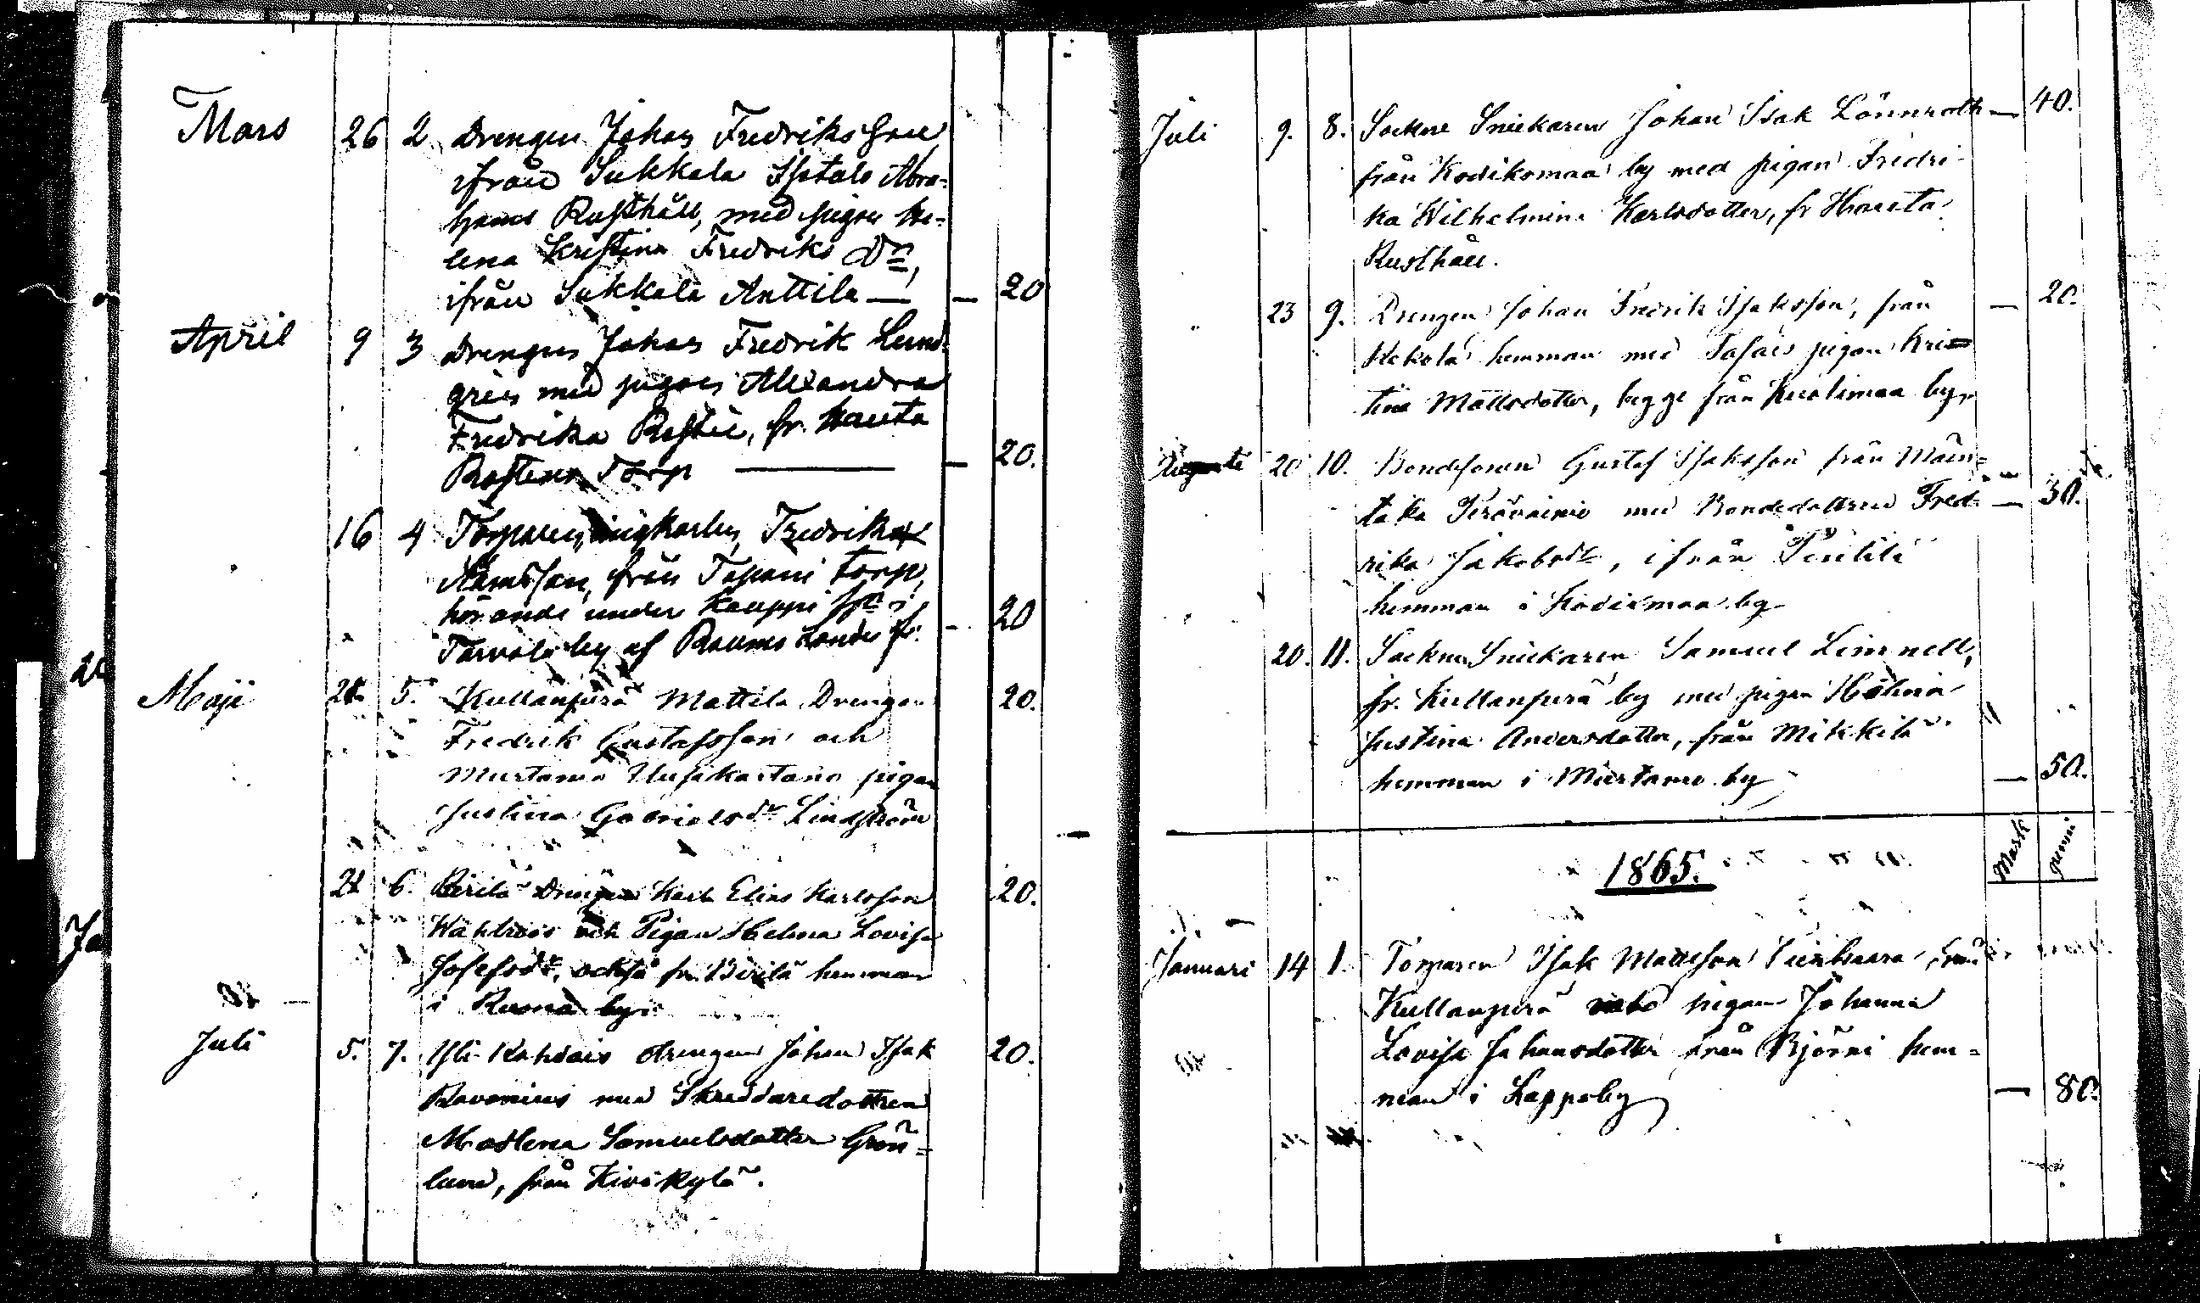 Mars 26 2 Drengen Johan Fredriksson
ifrån Sukkala Isotalo Abra-
hams Rusthåll, med pigan He-
lena Kristina Fredriks Dr,
ifrån Sukkala Anttila — — 20
April 9 3 Drengen Johan Fredrik Lund-
gren med pigan Alexandra
Fredrika Rostén, fr. Hauta
Rostens Torp — — 20.
16 4 Torparen, Fredrik
från Tapani torp,
hörande under Kauppi i
Torvola by af Raumo Lands f. - 20
Maji 21. 5. Kullanperä Mattila Drengen 20.
Fredrik Gustafsson och
Murtamo Uusikartano pigan
Justina Gabrielsdr Lindström
21 6. Pirilä Drengen Karl Elias Karlsson 20.
och Pigan Helena Lovisa
Josefsdr, också fr. Pirilä hemman
i by.
Juli 5. 7. Yli Kahlois drengen Johan Isak 20.
Ravonius med Skreddaredottren
Madlena Samuelsdotter Grön-
lund, från Kivikylä.
Juli 9. 8. Sockne Snickaren Johan Isak Lönnroth — 40.
från Kodiksmaa by med pigan Fredri-
ka Wilhelmina Karlsdotter, fr Hauta
Rusthåll.
" 23 9. Drengen Johan Fredrik Isaksson, från — 20.
Kekola hemman med pigan Kris=
tina Mattsdotter, begge från Kuolimaa by.
Augusti 20 10. Bondesonen Gustaf Isaksson från Män=
taka Perävainio med Bondedottren Fred- — 30.
rika Jakobsdr, ifrån Penttilä
hemman i Kodixmaa by
20. 11. Sockne Snickaren Samuel Limnell,
fr. Kullanperä by med pigan
Justina Andersdotter, från Mikkilä
hemman i Murtamo by — 50.
1865. Mark penni
Januari 14 1. Torparen Isak Mattsson från
Kullanperä med pigan Johanna
Lovisa Johansdotter från Björni hem=
man i Lappo by — 80.